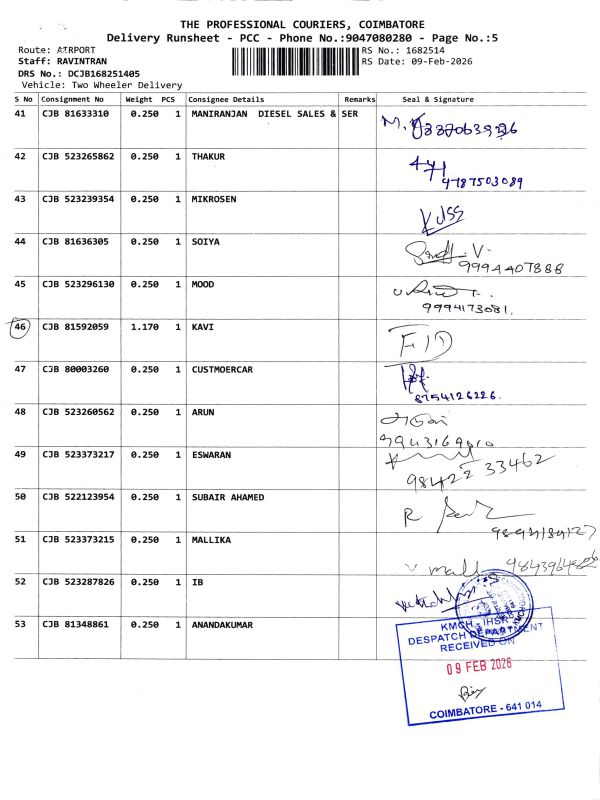 THE PROFESSIONAL COURIERS, COIMBATORE
Delivery Runsheet - PCC - Phone No.:9047080280 - Page No.:5
Route: AIRPORT
RS No.: 1682514
Staff: RAVINTRAN
RS Date: 09-Feb-2026
DRS No.: DCJB168251405
Vehicle: Two Wheeler Delivery
S No Consignment No Weight PCS Consignee Details Remarks Seal & Signature
41 CJB 81633310 0.250 1 MANIRANJAN DIESEL SALES & SER
42 CJB 523265862 0.250 1 THAKUR
4787503089
43 CJB 523239354 0.250 1 MIKROSEN
44 CJB 81636305 0.250 1 SOIYA
9994407888
45 CJB 523296130 0.250 1 MOOD
9994173081.
46 CJB 81592059 1.170 1 KAVI
47 CJB 80003260 0.250 1 CUSTMOERCAR
8754126226.
48 CJB 523260562 0.250 1 ARUN
49 CJB 523373217 0.250 1 ESWARAN
98422 33462
50 CJB 522123954 0.250 1 SUBAIR AHAMED
51 CJB 523373215 0.250 1 MALLIKA
52 CJB 523287826 0.250 1 IB
53 CJB 81348861 0.250 1 ANANDAKUMAR
KMCH IHSR
DESPATCH DEPARTMENT
RECEIVED ON
09 FEB 2026
COIMBATORE - 641 014